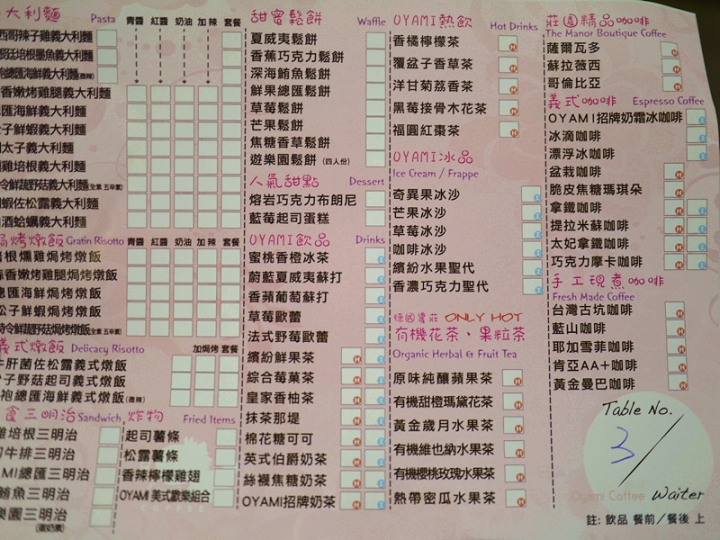 大利麵 Pasta 青醬 紅醬 奶油 加辣 套餐
西哥辣子雞義大利麵
培根墨魚義大利麵
總匯海鮮義大利麵
香嫩烤雞腿義大利麵
匯海鮮義大利麵
子鮮蝦義大利麵
太子義大利麵
雞培根義大利麵
鮮蔬野菇義大利麵
蝦佐松露義大利麵
酒蛤蠣義大利麵
焗烤燉飯 Gratin Risotto 青醬 紅醬 奶油 加辣 套餐
培根燻雞焗烤燉飯
香嫩烤雞腿焗烤燉飯
總匯海鮮焗烤燉飯
子鮮蝦焗烤燉飯
鮮蔬野菇焗烤燉飯
義式燉飯 Delicacy Risotto 加焗烤 套餐
牛肝菌佐松露義式燉飯
子野菇起司義式燉飯
總匯海鮮義式燉飯
三明治 Sandwich
雞培根三明治
牛排三明治
AMI總匯三明治
鮪魚三明治
樂園三明治
炸物 Fried Items
起司薯條
松露薯條
香辣檸檬雞翅
OYAMI 美式歡樂組合
甜蜜鬆餅 Waffle
夏威夷鬆餅
香蕉巧克力鬆餅
深海鮪魚鬆餅
鮮果總匯鬆餅
草莓鬆餅
芒果鬆餅
焦糖香草鬆餅
遊樂園鬆餅 (四人份)
人氣甜點 Dessert
熔岩巧克力布朗尼
藍莓起司蛋糕
OYAMI飲品 Drinks
蜜桃香橙冰茶
蔚藍夏威夷蘇打
香蘋葡萄蘇打
草莓歐蕾
法式野莓歐蕾
繽紛鮮果茶
綜合莓菓茶
皇家香柚茶
抹茶那堤
棉花糖可可
英式伯爵奶茶
絲襪焦糖奶茶
OYAMI招牌奶茶
OYAMI熱飲 Hot Drinks
香橘檸檬茶
覆盆子香草茶
洋甘菊荔香茶
黑莓接骨木花茶
福圓紅棗茶
OYAMI冰品
Ice Cream / Frappe
奇異果冰沙
芒果冰沙
草莓冰沙
咖啡冰沙
繽紛水果聖代
香濃巧克力聖代
德國農莊 ONLY HOT
有機花茶・果粒茶
Organic Herbal & Fruit Tea
原味純釀蘋果茶
有機甜橙瑪黛花茶
黃金歲月水果茶
有機維也納水果茶
有機櫻桃玫瑰水果茶
熱帶密瓜水果茶
莊園精品咖啡
The Manor Boutique Coffee
薩爾瓦多
蘇拉薇西
哥倫比亞
義式咖啡 Espresso Coffee
OYAMI招牌奶霜冰咖啡
冰滴咖啡
漂浮冰咖啡
盆栽咖啡
脆皮焦糖瑪琪朵
拿鐵咖啡
提拉米蘇咖啡
太妃拿鐵咖啡
巧克力摩卡咖啡
手工現煮咖啡
Fresh Made Coffee
台灣古坑咖啡
藍山咖啡
耶加雪菲咖啡
肯亞AA+咖啡
黃金曼巴咖啡
Table No.
3
Oyami Coffee Waiter
註: 飲品 餐前／餐後 上